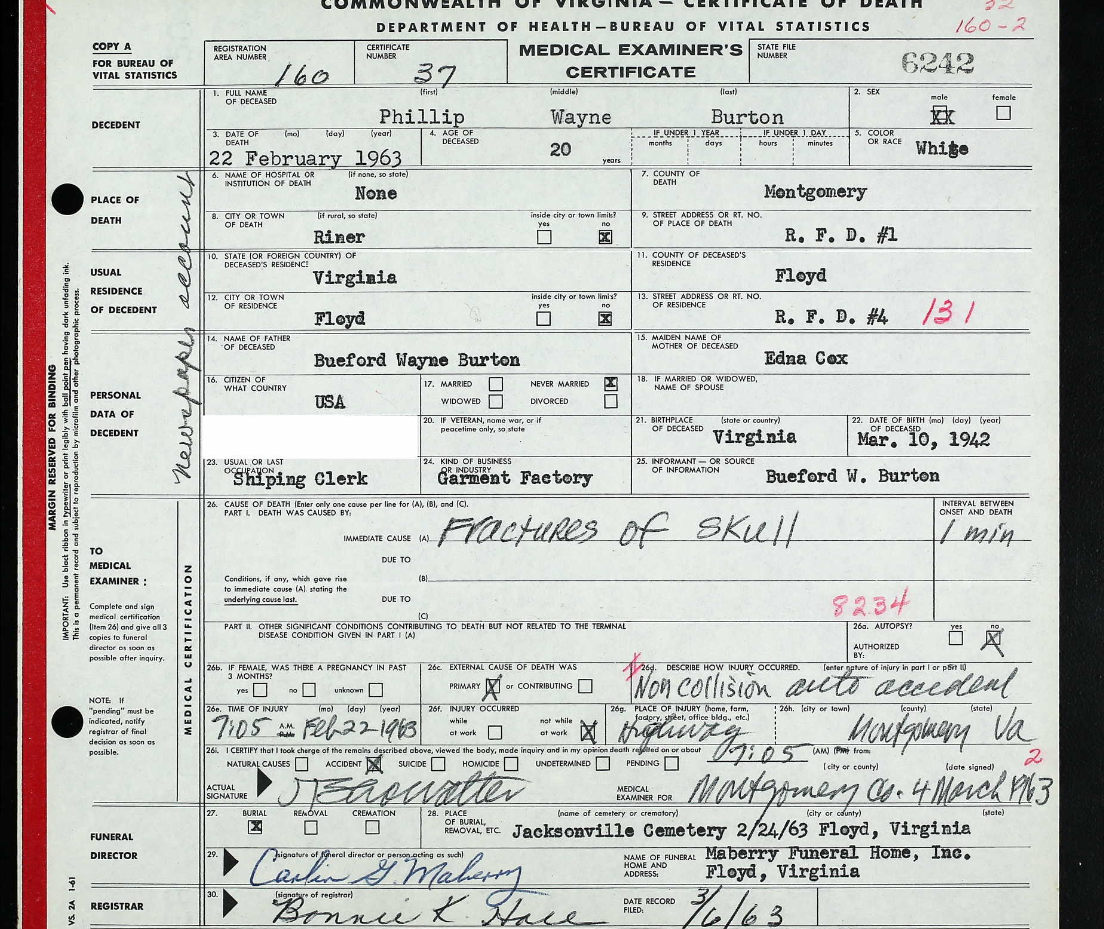 COMMONWEALTH OF VIRGINIA — CERTIFICATE OF DEATH
DEPARTMENT OF HEALTH—BUREAU OF VITAL STATISTICS
160-2
COPY A
FOR BUREAU OF
VITAL STATISTICS
REGISTRATION
AREA NUMBER 160
CERTIFICATE
NUMBER 37
MEDICAL EXAMINER'S
CERTIFICATE
STATE FILE
NUMBER 6242
DECEDENT
1. FULL NAME (first) (middle) (last)
OF DECEASED
Phillip Wayne Burton
2. SEX male female
XX
3. DATE OF (mo) (day) (year)
DEATH
22 February 1963
4. AGE OF
DECEASED
20 years
IF UNDER 1 YEAR IF UNDER 1 DAY
months days hours minutes
5. COLOR
OR RACE White
PLACE OF
DEATH
6. NAME OF HOSPITAL OR (if none, so state)
INSTITUTION OF DEATH
None
7. COUNTY OF
DEATH
Montgomery
8. CITY OR TOWN (if rural, so state) inside city or town limits?
OF DEATH yes no
Riner X
9. STREET ADDRESS OR RT. NO.
OF PLACE OF DEATH
R. F. D. #1
USUAL
RESIDENCE
OF DECEDENT
10. STATE (OR FOREIGN COUNTRY) OF
DECEASED'S RESIDENCE
Virginia
11. COUNTY OF DECEASED'S
RESIDENCE
Floyd
12. CITY OR TOWN inside city or town limits?
OF RESIDENCE yes no
Floyd X
13. STREET ADDRESS OR RT. NO.
OF RESIDENCE
R. F. D. #4 131
PERSONAL
DATA OF
DECEDENT
14. NAME OF FATHER
OF DECEASED
Bueford Wayne Burton
15. MAIDEN NAME OF
MOTHER OF DECEASED
Edna Cox
16. CITIZEN OF
WHAT COUNTRY
USA
17. MARRIED NEVER MARRIED X
WIDOWED DIVORCED
18. IF MARRIED OR WIDOWED,
NAME OF SPOUSE
20. IF VETERAN, name war, or if
peacetime only, so state
21. BIRTHPLACE (state or country)
OF DECEASED
Virginia
22. DATE OF BIRTH (mo) (day) (year)
OF DECEASED
Mar. 10, 1942
23. USUAL OR LAST
OCCUPATION
Shiping Clerk
24. KIND OF BUSINESS
OR INDUSTRY
Garment Factory
25. INFORMANT — OR SOURCE
OF INFORMATION
Bueford W. Burton
newspaper account
MARGIN RESERVED FOR BINDING
IMPORTANT: Use black ribbon in typewriter or print legibly with ball point pen having dark unfading ink.
This is a permanent record and subject to reproduction by microfilm and other photographic process.
TO
MEDICAL
EXAMINER :
Complete and sign
medical certification
(Item 26) and give all 3
copies to funeral
director as soon as
possible after inquiry.
NOTE: If
"pending" must be
indicated, notify
registrar of final
decision as soon as
possible.
MEDICAL CERTIFICATION
26. CAUSE OF DEATH (Enter only one cause per line for (A), (B), and (C).
PART I. DEATH WAS CAUSED BY:
INTERVAL BETWEEN
ONSET AND DEATH
IMMEDIATE CAUSE (A) Fractures of Skull 1 min
DUE TO
Conditions, if any, which gave rise (B)
to immediate cause (A) stating the
underlying cause last. DUE TO
(C)
8234
PART II. OTHER SIGNIFICANT CONDITIONS CONTRIBUTING TO DEATH BUT NOT RELATED TO THE TERMINAL
DISEASE CONDITION GIVEN IN PART I (A)
26a. AUTOPSY? yes no
X
AUTHORIZED
BY:
26b. IF FEMALE, WAS THERE A PREGNANCY IN PAST
3 MONTHS?
yes no unknown
26c. EXTERNAL CAUSE OF DEATH WAS
PRIMARY X or CONTRIBUTING
26d. DESCRIBE HOW INJURY OCCURRED. (enter nature of injury in part I or part II)
Non collision auto accident
26e. TIME OF INJURY (mo) (day) (year)
7:05 A.M. P.M. Feb 22-1963
26f. INJURY OCCURRED
while at work not while at work X
26g. PLACE OF INJURY (home, farm,
factory, street, office bldg., etc.)
Highway
26h. (city or town) (county) (state)
Montgomery Va
26i. I CERTIFY that I took charge of the remains described above, viewed the body, made inquiry and in my opinion death resulted on or about 7:05 (AM) (PM) from
NATURAL CAUSES ACCIDENT X SUICIDE HOMICIDE UNDETERMINED PENDING (city or county) (date signed) 2
ACTUAL
SIGNATURE
MEDICAL
EXAMINER FOR Montgomery Co. 4 March 1963
FUNERAL
DIRECTOR
27. BURIAL REMOVAL CREMATION
X
28. PLACE (name of cemetery or crematory) (city or county) (state)
OF BURIAL,
REMOVAL, ETC. Jacksonville Cemetery 2/24/63 Floyd, Virginia
29. (signature of funeral director or person acting as such)
Carlin G. Maberry
NAME OF FUNERAL
HOME AND
ADDRESS:
Maberry Funeral Home, Inc.
Floyd, Virginia
VS. 2A 1-61
REGISTRAR
30. (signature of registrar)
Bonnie K.
DATE RECORD
FILED: 3/6/63